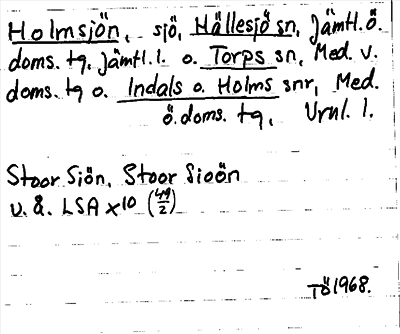 Holmsjön, sjö, Hällesjö sn, Jämtl. ö.
doms. tg, Jämtl. l. o. Torps sn, Med. v.
doms. tg o. Indals o. Holms snr, Med.
ö. doms. tg, Vrnl. l.
Stoor Siön, Stoor Sioön
u. å. LSA X10 (49/2)
TÖ 1968.